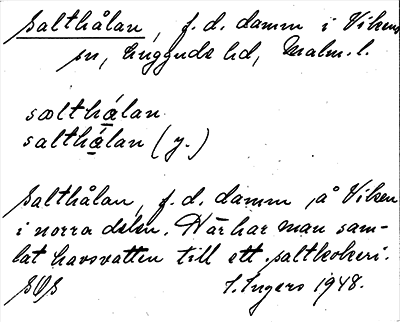 Salthålan, f.d. damm i Vikens
sn, Luggude hd, Malm. l.
sælthǻlan
salthǻlan (y.)
Salthålan, f.d. damm, å Viken
i norra delen. Här har man sam-
lat havsvatten till ett saltkokeri.
SOS I. Ingers 1948.